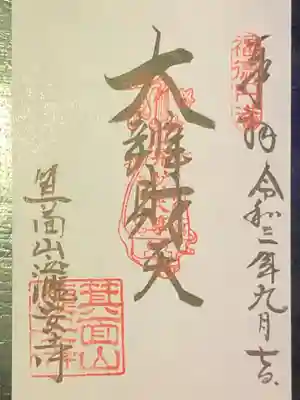 奉拝
令和三年九月吉日
大辨財天
箕面山瀧安寺
箕面山